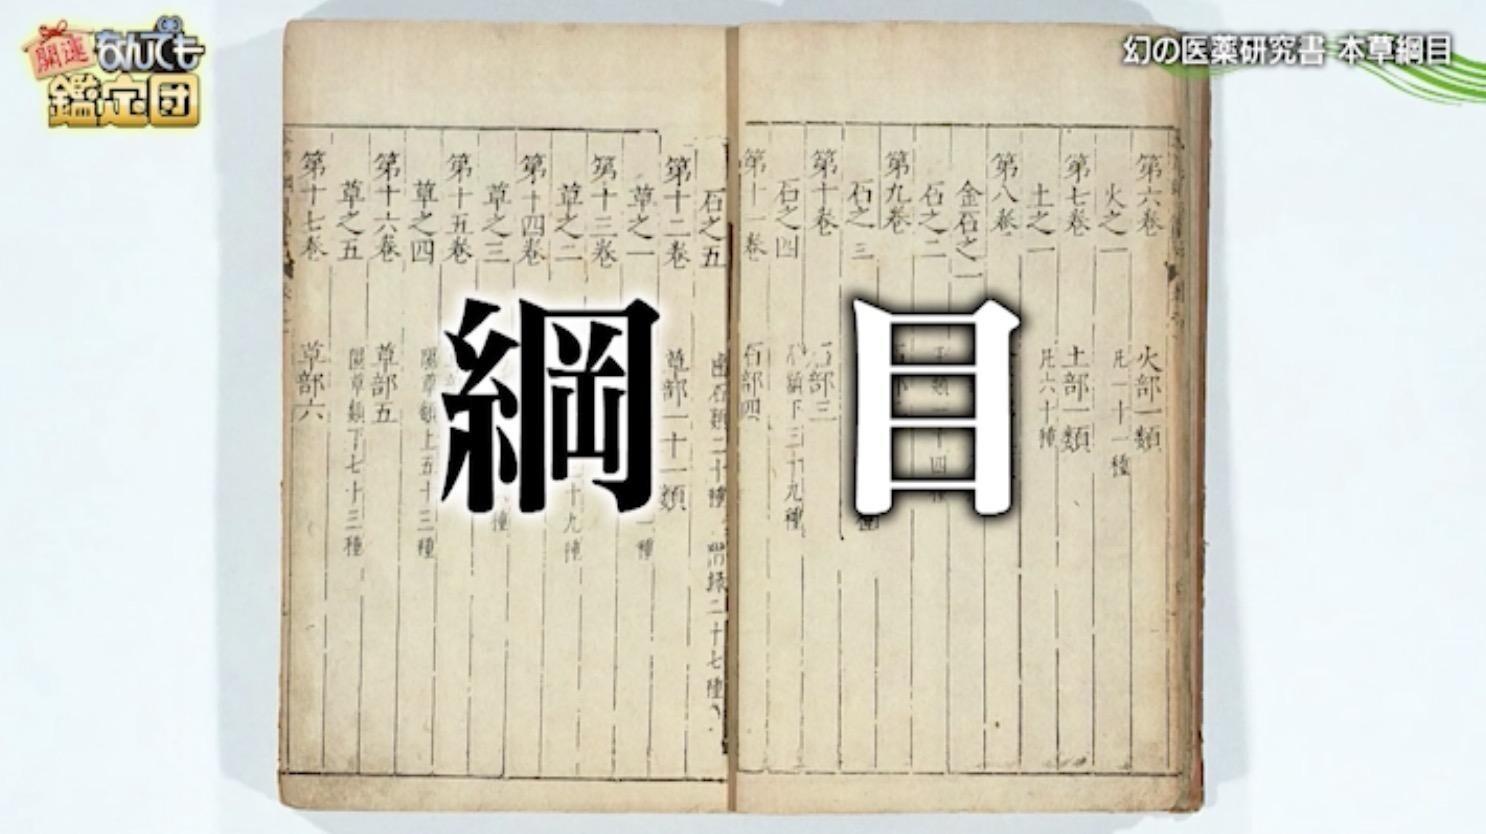 開運
なんでも
鑑定団
幻の医薬研究書 本草綱目
綱 目
第六卷 火部一類
火之一 凡一十一種
第七卷 土部一類
土之一 凡六十一種
第八卷
金石之一
石之二
第九卷
石之三
第十卷 石部三
石之四 石類下三十九種
第十一卷 石部四
石之五 鹵石類二十種 附録二十七種
第十二卷 草部一十一類
草之一
第十三卷
草之二
第十四卷
草之三
第十五卷
草之四 隰草類上五十三種
第十六卷 草部五
草之五 隰草類下七十三種
第十七卷 草部六